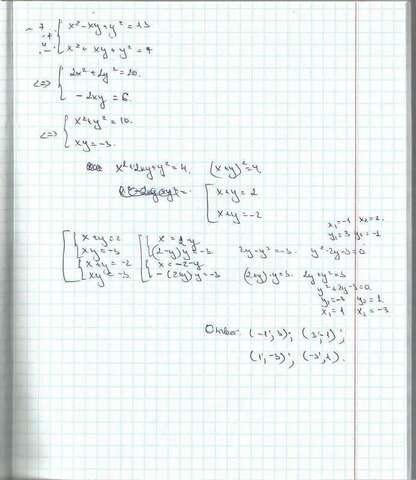 { x² - xy + y² = 13
{ x² + xy + y² = 7
<=> { 2x² + 2y² = 20.
{ -2xy = 6.
<=> { x² + y² = 10.
{ xy = -3.
x² + 2xy + y² = 4. (x+y)² = 4
[ x+y = 2
[ x+y = -2
[ { x+y = 2 { x = 2-y
{ xy = -3 { (2-y)y = -3 2y - y² = -3. y² - 2y - 3 = 0
x₁ = -1 x₂ = 3.
y₁ = 3 y₂ = -1
{ x+y = -2 { x = -2-y
{ xy = -3 { -(2+y)y = -3 (2+y)·y = 3. 2y + y² = 3
y² + 2y - 3 = 0
y₁ = -3 y₂ = 1
x₁ = 1 x₂ = -3
Ответ: (-1; 3); (3; -1);
(1; -3); (-3; 1).